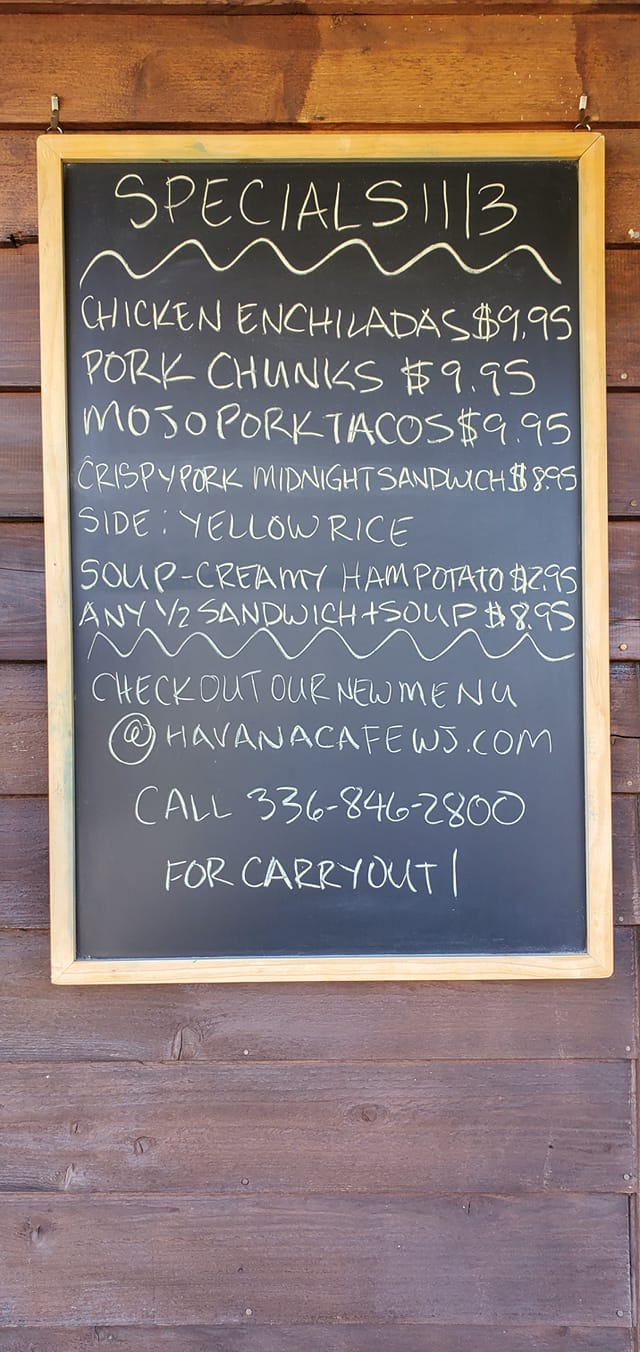 SPECIALS 11/3
CHICKEN ENCHILADAS $9.95
PORK CHUNKS $9.95
MOJO PORK TACOS $9.95
CRISPY PORK MIDNIGHT SANDWICH $8.95
SIDE: YELLOW RICE
SOUP-CREAMY HAM POTATO $2.95
ANY 1/2 SANDWICH + SOUP $8.95
CHECK OUT OUR NEW MENU
@ HAVANACAFEWJ.COM
CALL 336-846-2800
FOR CARRYOUT!